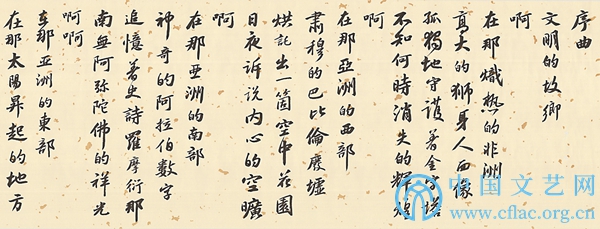 序曲
文明的故鄉
啊
在那熾熱的非洲
高大的狮身人面像
孤獨地守護着金字塔
不知何時消失的輝煌
啊
在那亞洲的西部
肅穆的巴比倫廢墟
烘託出一箇空中花園
日夜诉说内心的空曠
啊
在那亞洲的南部
神奇的阿拉伯數字
追憶着史詩羅摩衍那
南無阿弥陀佛的祥光
啊啊
在那亚洲的東部
在那太陽昇起的地方
中国文艺网
www.cflac.org.cn